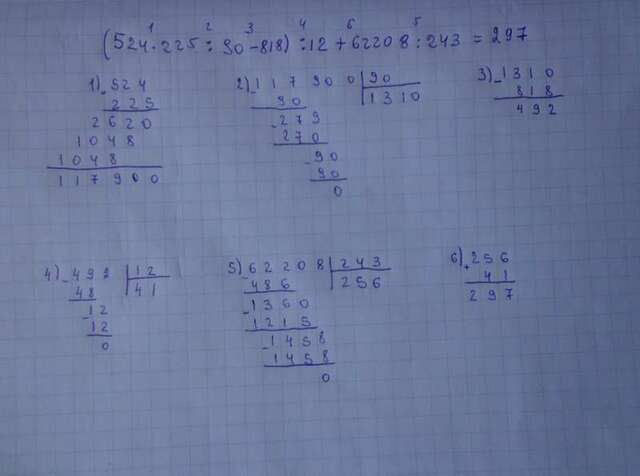 1 2 3 4 6 5
(524·225:90-818):12+62208:243=297
1) 524
225
2620
1048
1048
117900
2) 117900 | 90
90 1310
279
270
90
90
0
3) -1310
818
492
4) -492 | 12
48 41
-12
12
0
5) 62208 | 243
-486 256
-1360
1215
-1458
1458
0
6) +256
41
297